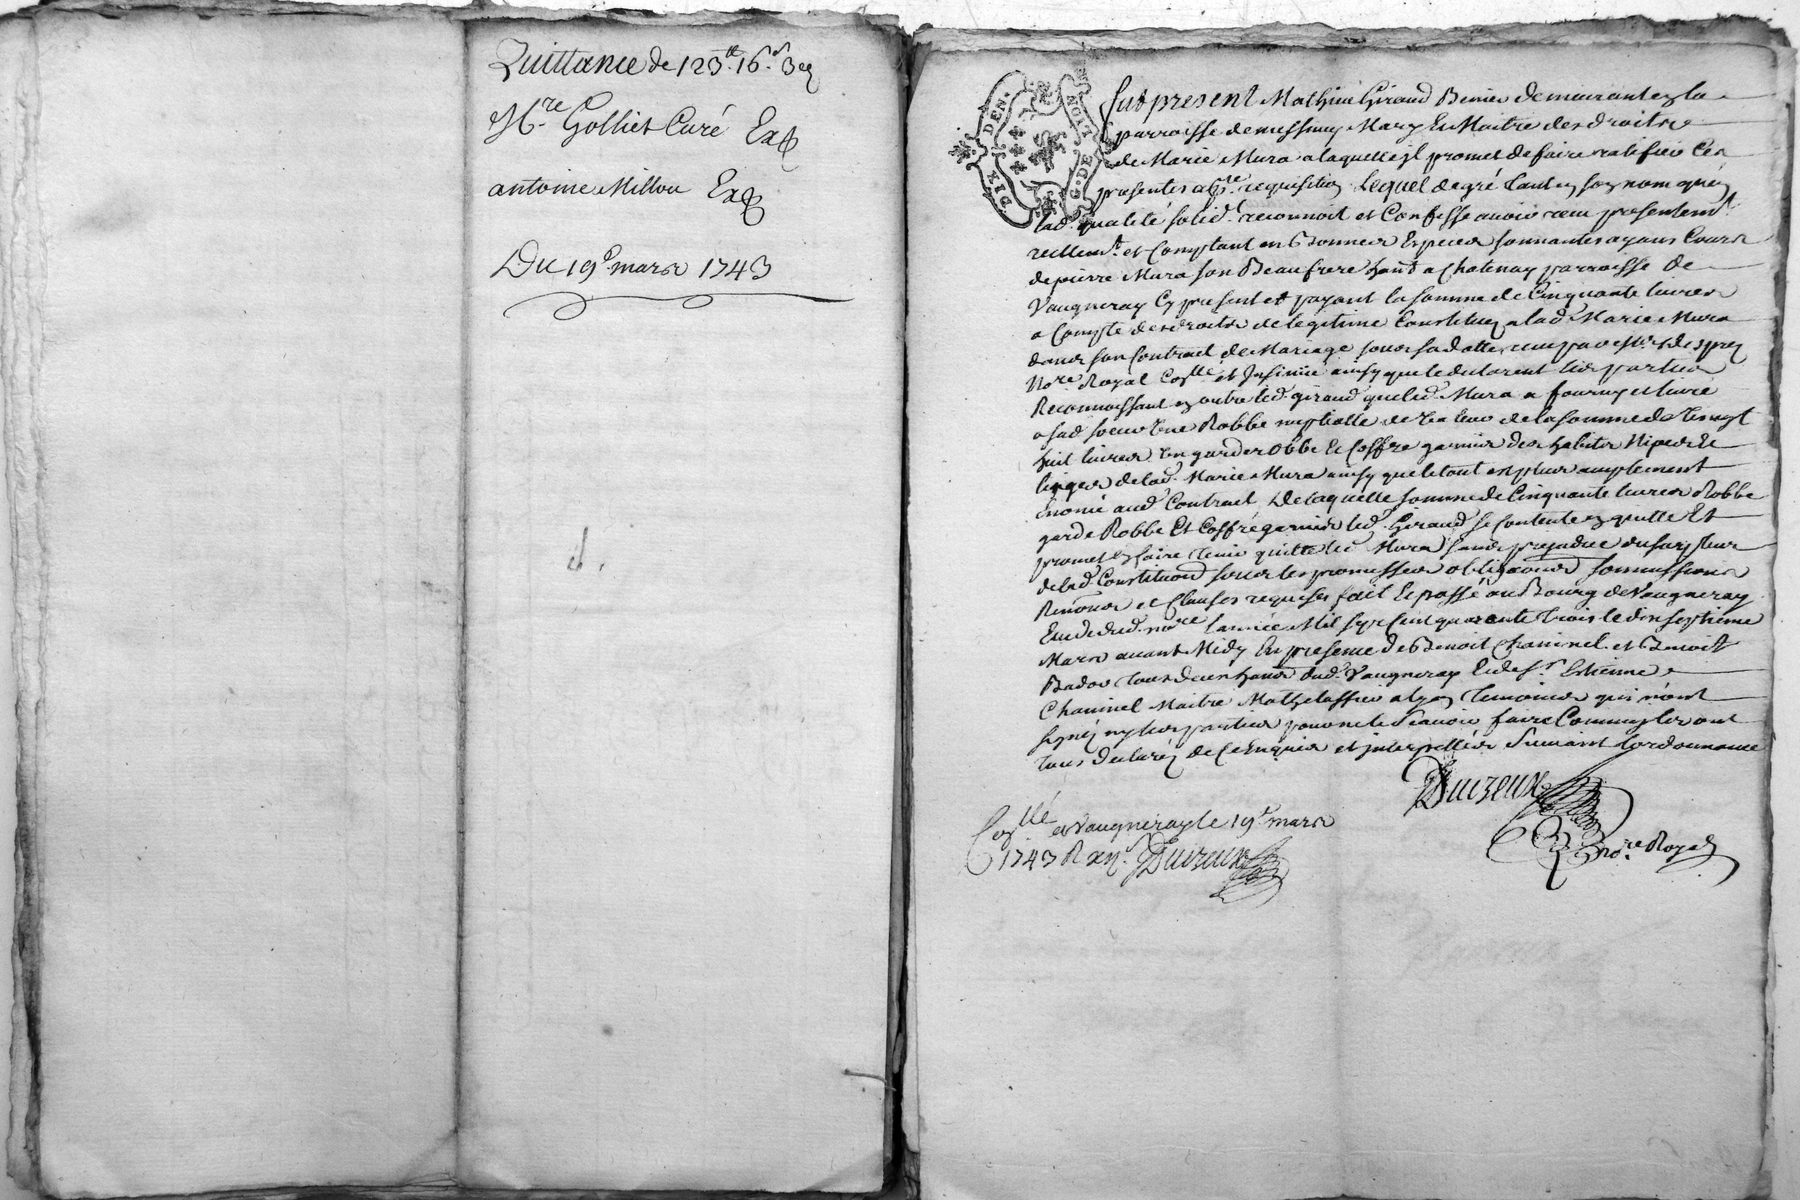 Quittance de 123ˡᵗ. 16ˢ. 3
Mʳᵉ Golliet Curé Ex
antoine Millou Ex
Du 19ᵉ mars 1743
DIXI. DEN.
G. DE LION
fut present Mathieu Giraud demeurant en la
parroisse de messimy Mary Et Maitre des droits
de Marie Mura a laquelle il promet de faire ratifier Ces
presentes a requisition Lequel de gré tant en son nom qu'en
lad. qualité solid. reconnoit et Confesse avoir reçu presentemt.
reellemt. et Comptant en Bonnes Especes sonnantes ayans Cours
de pierre Mura son Beaufrere habt. a Chatenay parroisse de
Vaugneray Cy present et payant la somme de Cinquante livres
a Compte des droits de legitime Constitués a lad. Marie Mura
dans son Contract de Mariage sous sa datte reçu par
Nore Royal Collé et Insinué ainsy que le declarent les parties
Reconnoissant en outre led. giraud que led. Mura a fourny et livré
a sad. soeur Une Robbe de la somme de Vingt
huit livres Un garderobbe Et Coffre garnis des habits Nipes Et
linges de lad. Marie Mura ainsy que le tout est plus amplement
Enoncé aud. Contract De laquelle somme de Cinquante livres Robbe
garde Robbe Et Coffre garnis led. Giraud se Contente en quitte Et
promet en faire tenir quitte led. Mura sans prejudice du surplus
de lad. Constitution sous les promesses obligaons soumissions
Renons et Clauses requises fait Et passé au Bourg de Vaugneray
Etude dud. nore l'année Mil sept Cent quarante trois le dix septieme
Mars avant Midy En presence de Benoit Chaninel et Benoit
Bador tous deux habts dud. Vaugneray Et de Sr. Estienne
Chaninel Maitre Mathelassier a Lyon temoins qui n'ont
signéz ny les parties pour ne le sçavoir faire Comm' ils ont
tous declaréz de Ce Enquis et interpellés Suivant l'ordonnance
Duizeux
nore. Royal
Collé a Vaugneray le 19ᵉ mars
1743 R xijˢ Duizeux